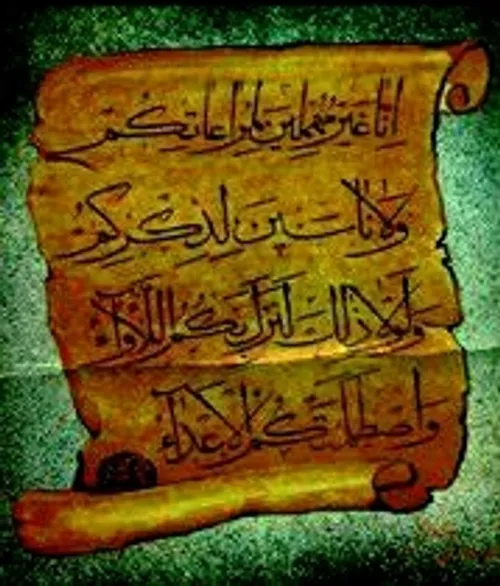 انا غير مهملين لمراعاتكم
ولا ناسين لذكركم
ولولا ذلك لنزل بكم اللاواء
واصطلمتكم الاعداء